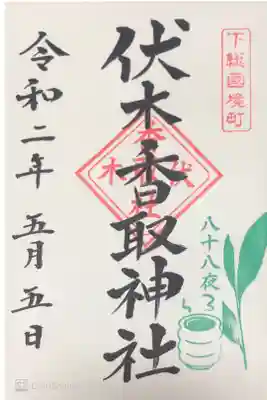 下総国境町
伏木香取神社
八十八夜
令和二年 五月五日